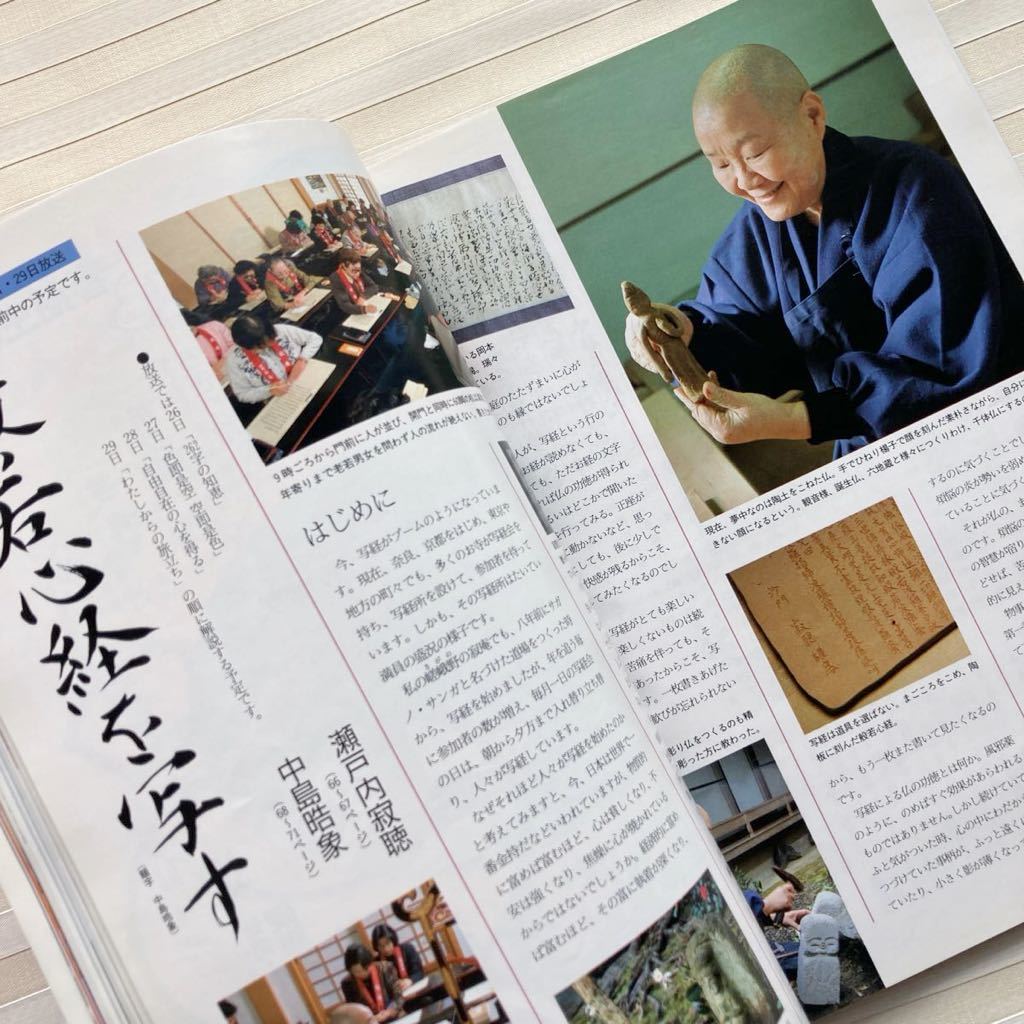 ・29日放送
前中の予定です。
般若心経を写す
(題字 中島皓象)
●放送では26日「262字の知恵」
27日「色即是空・空即是色」
28日「自由自在の心を得る」
29日「わたしからの旅立ち」の順に解説する予定です。
瀬戸内寂聴
(66〜67ページ)
中島皓象
(68〜71ページ)
9時ころから門前に人が並び、開門と同時に
年寄りまで老若男女を問わず人の流れが絶えない。
はじめに
今、写経がブームのようになっていま
す。現在、奈良、京都をはじめ、東京や
地方の町々でも、多くのお寺が写経会を
持ち、写経所を設けて、参加者を待って
います。しかも、その写経所はたいてい
満員の盛況の様子です。
私の嵯峨野の寂庵でも、八年前にサガ
ノ・サンガと名づけた道場をつくった時
から、写経を始めましたが、年を追う毎
に参加者の数が増え、毎月一日の写経会
の日は、朝から夕方まで入れ替り立ち替
り、人々が写経しています。
なぜそれほど人々が写経を始めたのか
と考えてみますと、今、日本は世界で一
番金持だなどいわれていますが、物質的
に富めば富むほど、心は貧しくなり、不
安は強くなり、焦燥に心が焼かれている
からではないでしょうか。経済的に富め
ば富むほど、その富に執着が深くなり、
いる岡本
場。瑞々
ている。
庭のたたずまいに心が
のも縁ではないでしょ
人が、写経という行の
お経が読めなくても、
、ただお経の文字
れば仏の功徳が得られ
るいはどこかで聞いた
を行ってみる。正座が
に動かないなど、思っ
にしても、後に少しで
快感が残るからこそ、
てみたくなるのでし
写経がとても楽しい
楽しくないものは続
苦痛を伴っても、そ
あったからこそ、写
す。一枚書きあげた
歓びが忘れられない
彫り仏をつくるのも精
彫った方に教わった。
現在、夢中なのは陶土をこねた仏。手でひねり楊子で顔を刻んだ素朴さながら、自分に
きない顔になるという。観音様、誕生仏、六地蔵と様々につくりわけ、千体仏にする
写経は道具を選ばない。まごころをこめ、陶
板に刻んだ般若心経。
から、もう一枚また書いて見たくなるの
です。
写経による仏の功徳とは何か。風邪薬
のように、のめばすぐ効果があらわれる
ものではありません。しかし続けていて
ふと気がついた時、心の中にわだかま
つづけていた事柄が、ふっと遠く
ていたり、小さく影が薄くなって
するのに気づくこと
煩悩の炎が勢いを弱
ていることに気づく
それが仏の、ま
のです。煩悩の
の智慧が宿り
とせば、苦
的に見え
物事
第一